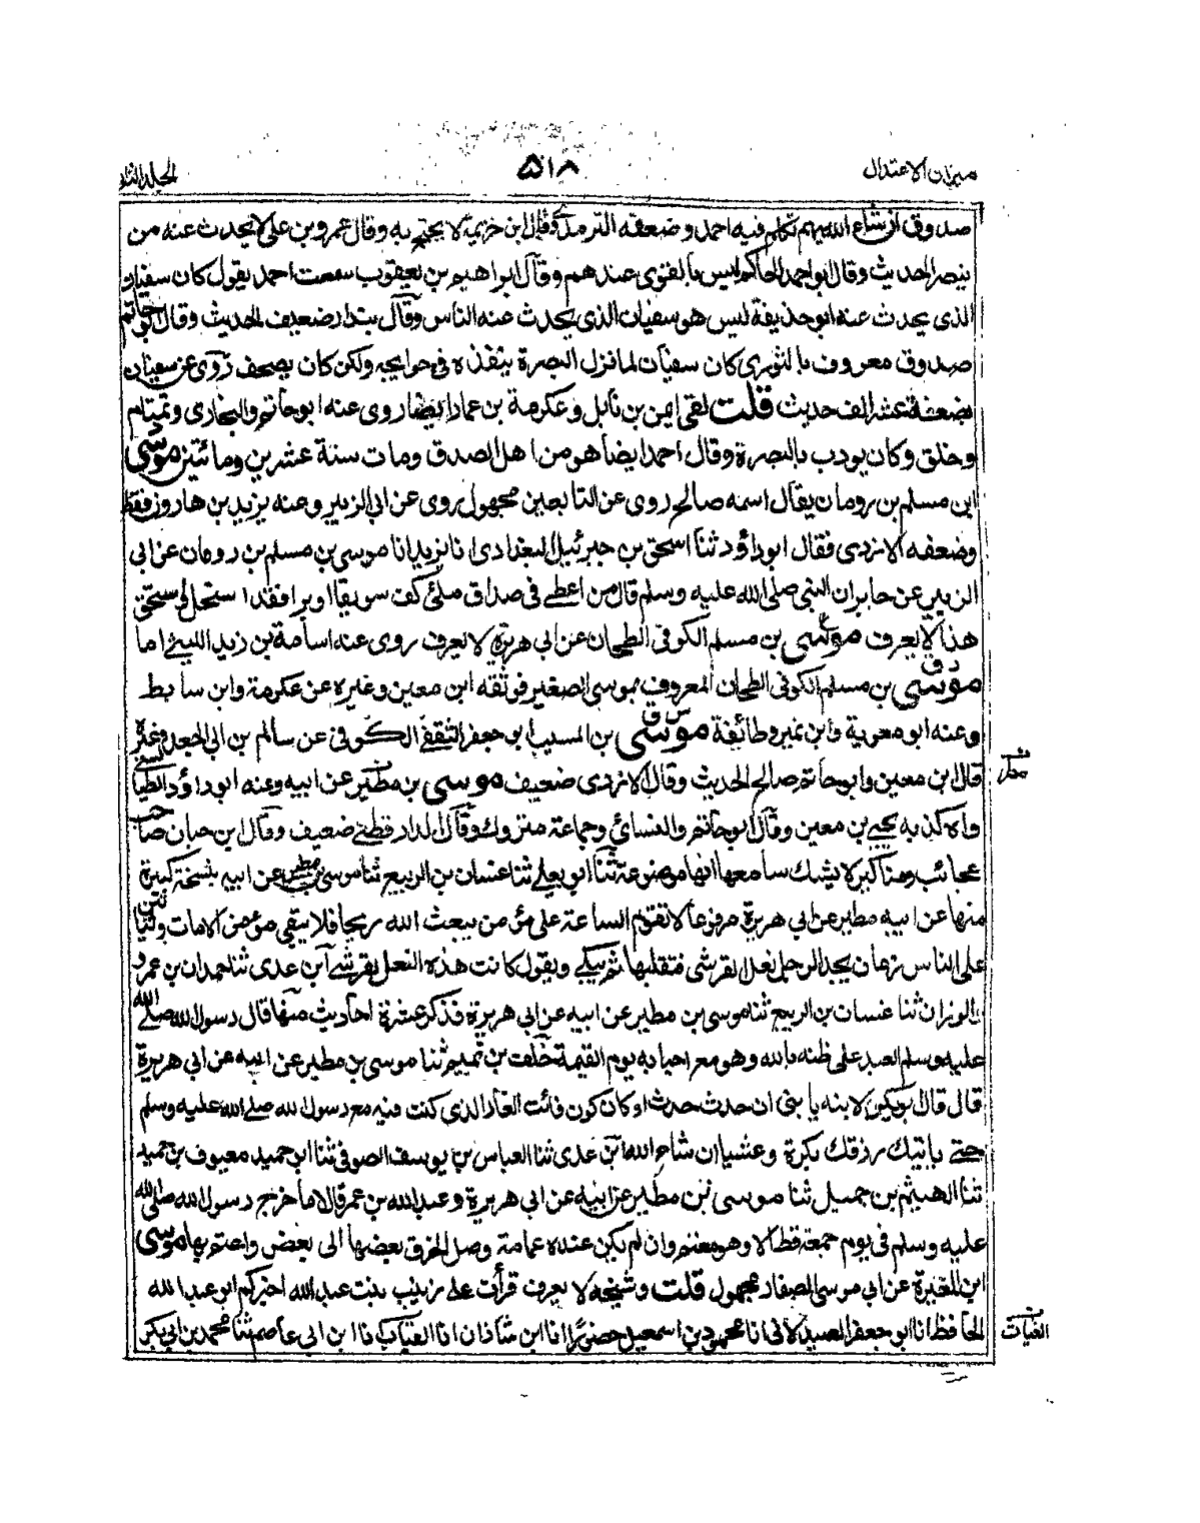 ميزان الاعتدال
٥١٨
الجلد الثا
صدوق ان شاء الله يهم تكلم فيه احمد وضعفه الترمذي وقال ابن خزيمة لا يحتج به وقال عمرو بن علي لا يحدث عنه من
يبصر الحديث وقال ابو احمد الحاكم ليس بالقوى عندهم وقال ابراهيم بن يعقوب سمعت احمد يقول كان سفيان
الذى يحدث عنه ابو حذيفة ليس هو سفيان الذى يحدث عنه الناس وقال بندار ضعيف الحديث وقال ابو حاتم
صدوق معروف بالثورى كان سفيان لما نزل البصرة ينفذه فى حوايجه ولكن كان يصحف روى عن سفيان
بضعة عشر الف حديث قلت لقى ايمن بن نابل وعكرمة بن عمار ايضا روى عنه ابو حاتم والبخارى وتمتام
وخلق وكان يودب بالبصرة وقال احمد ايضا هو من اهل الصدق ومات سنة عشرين ومائتين موسى
ابن مسلم بن رومان يقال اسمه صالح روى عن التابعين مجهول روى عن ابي الزبير وعنه يزيد بن هارون فقط
وضعفه الازدى فقال ابو داؤد ثنا اسحق بن جبرئيل البغدادى انا يزيد انا موسى بن مسلم بن رومان عن ابي
الزبير عن جابر ان النبي صلى الله عليه وسلم قال من اعطى فى صداق ملئ كف سويقا او برا فقد استحل
هذا لا يعرف موسى بن مسلم الكوفى الطحان عن ابي هريرة لا يعرف روى عنه اسامة بن زيد الليثى اما
د ق
موسى بن مسلم الكوفى الطحان المعروف بموسى الصغير فوثقه ابن معين وغيره عن عكرمة وابن سابط
وعنه ابو معوية وابن نمير وطائفة موسى بن المسيب ابو جعفر الثقفى الكوفى عن سالم بن ابي الجعد وغيره
قال ابن معين وابو حاتم صالح الحديث وقال الازدى ضعيف موسى بن مطير عن ابيه وعنه ابو داؤد الطيا
واه كذبه يحيى بن معين وقال ابو حاتم والنسائى وجماعة متروك وقال الدارقطنى ضعيف وقال ابن حبان صاحب
عجائب ومناكير لا يشك سامعها انها موضوعة ثنا ابو يعلى ثنا غسان بن الربيع ثنا موسى بن مطير عن ابيه بنسخة كبيرة
منها عن ابيه مطير عن ابي هريرة مرفوعا لا تقوم الساعة على مؤمن يبعث الله ريحا فلا يبقى مؤمن الا مات وليأتين
على الناس زمان يجد الرجل نعل القرشى فيقلبها ثم يبكى ويقول كانت هذه النعل لقرشى ابن عدى ثنا حمدان بن عمرو
الوزان ثنا غسان بن الربيع ثنا موسى بن مطير عن ابيه عن ابي هريرة فذكر عشرة احاديث منها قال رسول الله صلى الله
عليه وسلم العبد على ظنه بالله وهو مع احبابه يوم القيمة خلف بن تميم ثنا موسى بن مطير عن ابيه عن ابي هريرة
قال قال ابو بكر لابنه يا بنى ان حدث حدث او كان كون فائت الغار الذى كنت فيه مع رسول الله صلى الله عليه وسلم
حتى ياتيك رزقك بكرة وعشيا ان شاء الله ابن عدى ثنا العباس بن يوسف الصوفى ثنا ابن حميد معيوف بن حميد
ثنا الهيثم بن جميل ثنا موسى بن مطير عن ابيه عن ابي هريرة وعبد الله بن عمر قالا ما خرج رسول الله صلى الله
عليه وسلم فى يوم جمعة قط الا وهو معتم وان لم يكن عنده عمامة وصل الخرق بعضها الى بعض واعتم بها موسى
ابن المغيرة عن ابي موسى الصفار مجهول قلت وشيخه لا يعرف قرأت على زينب بنت عبد الله اخبركم ابو عبد الله
الحافظ انا ابو جعفر الصيدلانى انا محمود بن اسمعيل حضورا انا ابن شاذان انا القباب نا ابن ابي عاصم ثنا محمد بن ابي بكر